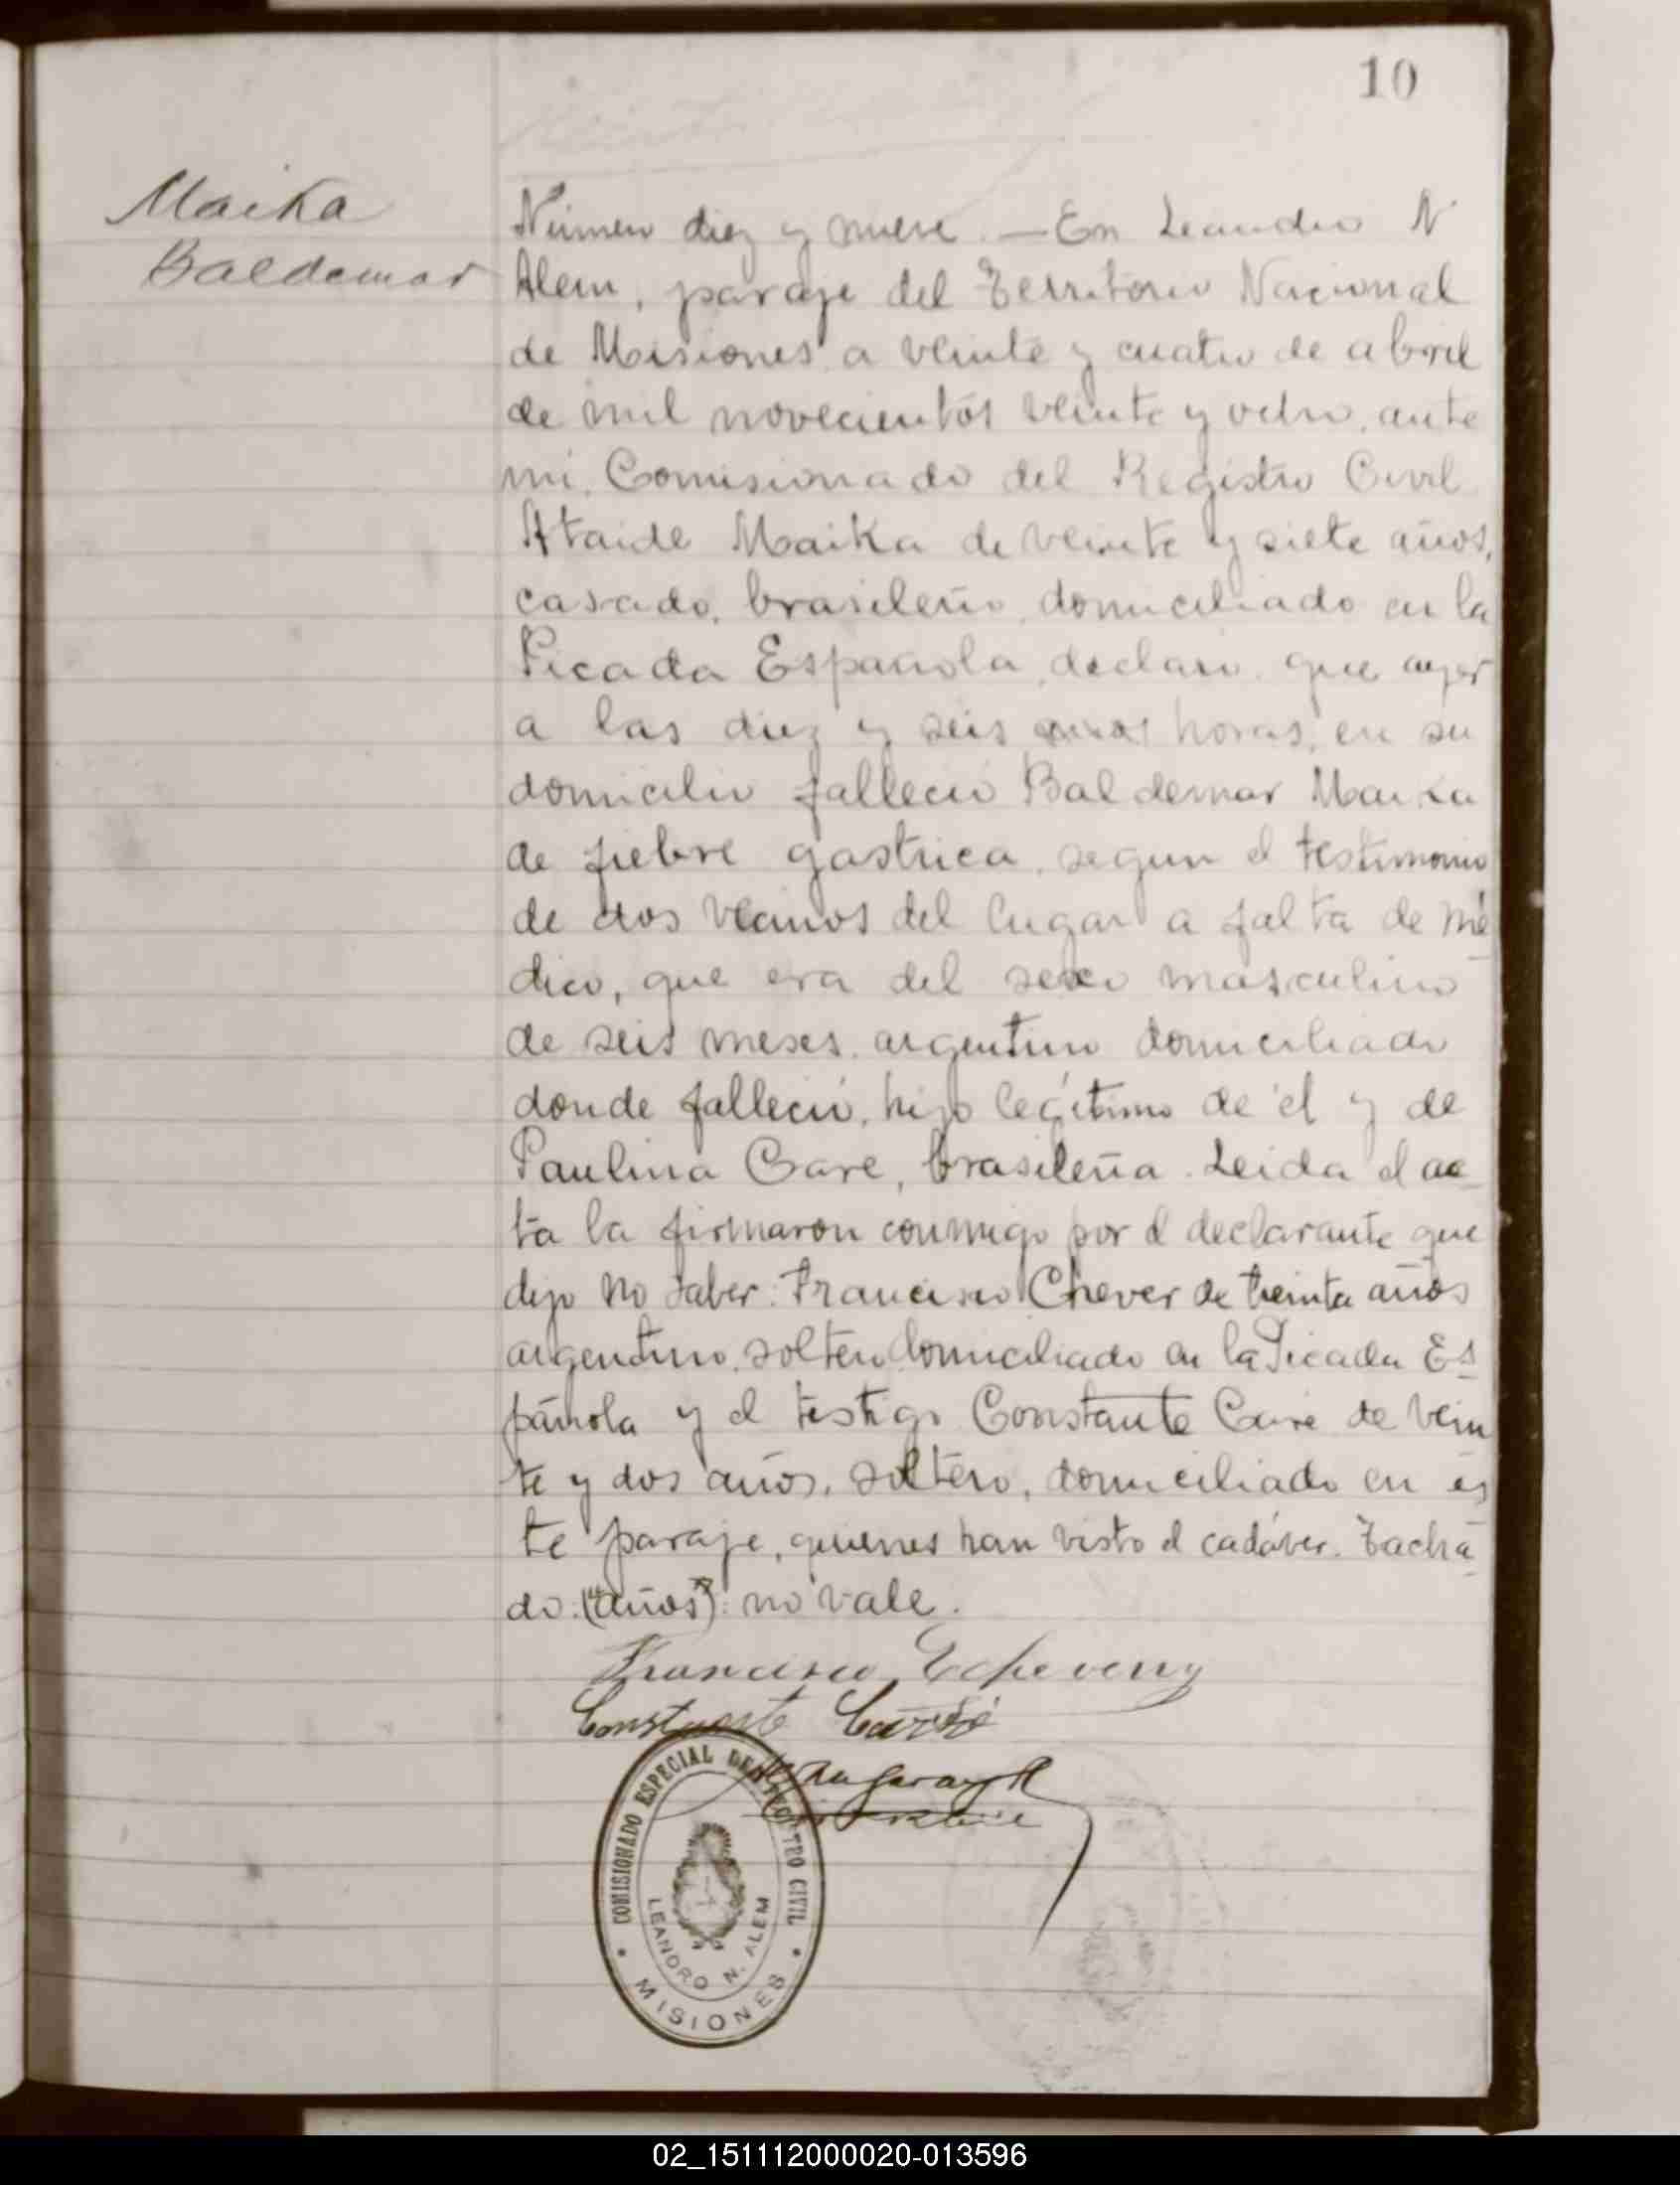 10
Maika
Baldemar
Número diez y nueve. — En Leandro N
Alem, paraje del Territorio Nacional
de Misiones a veinte y cuatro de abril
de mil novecientos veinte y ocho, ante
mi, Comisionado del Registro Civil
Ataide Maika de veinte y siete años,
casado, brasileño, domiciliado en la
Picada Española, declaro que ayer
a las diez y seis años horas, en su
domicilio fallecio Baldemar Maika
de fiebre gastrica, segun el testimonio
de dos vecinos del lugar a falta de mé
dico, que era del sexo masculino
de seis meses, argentino domiciliado
donde falleció, hijo legítimo de él y de
Paulina Care, brasileña. Leida el ac
ta la firmaron conmigo por el declarante que
dijo no saber: Francisco Chever de treinta años
argentino, soltero domiciliado en la Picada Es
pañola y el testigo Constante Care de vein
te y dos años, soltero, domiciliado en es
te paraje, quienes han visto el cadáver. Tacha
do: ("años"): no vale.
Francisco Echeverry
Constante Carré
COMISIONADO ESPECIAL DEL REGISTRO CIVIL
LEANDRO N. ALEM
MISIONES
02_151112000020-013596